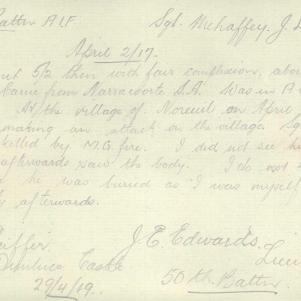 Battn AIF Sgt. Mehaffey. J.
April 2/17.
5/2 then with fair complexion, abou
Came from Narracoorte S.A. Was in A
At the village of Noreuil on April
making an attack on the village. Sg
killed by M.G. fire. I did not see h
afterwards saw the body. I do not
he was buried as I was myself
afterwards.
J. E. Edwards.
Lieu
Castle
29/4/19. 50th Battn